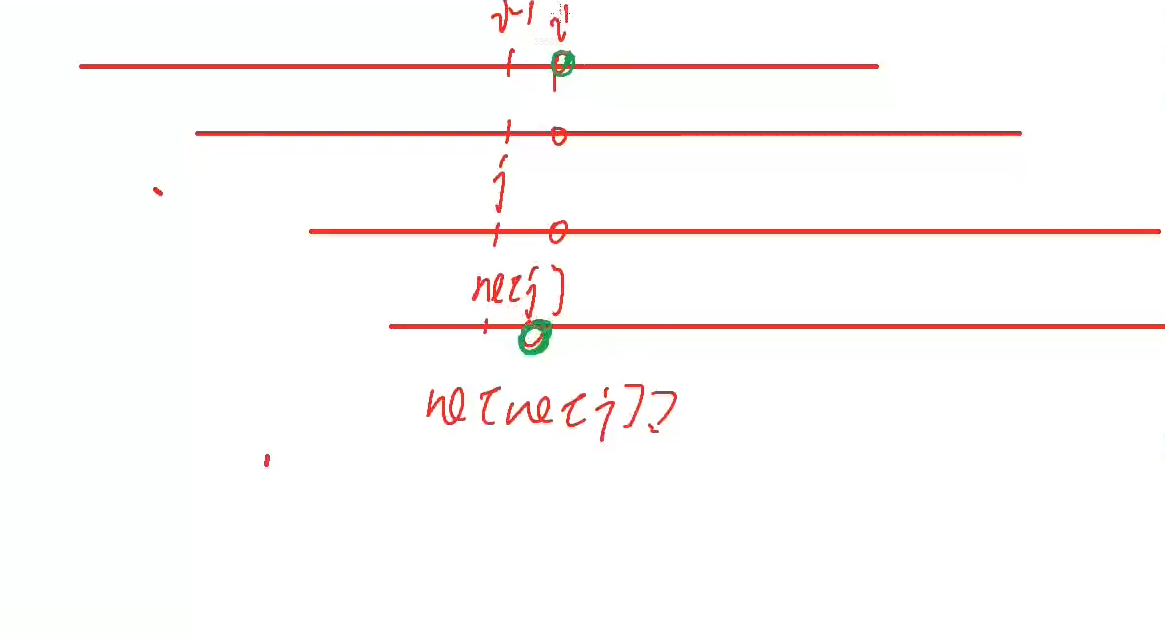 i-1 i
j
ne[j]
ne[ne[j]]